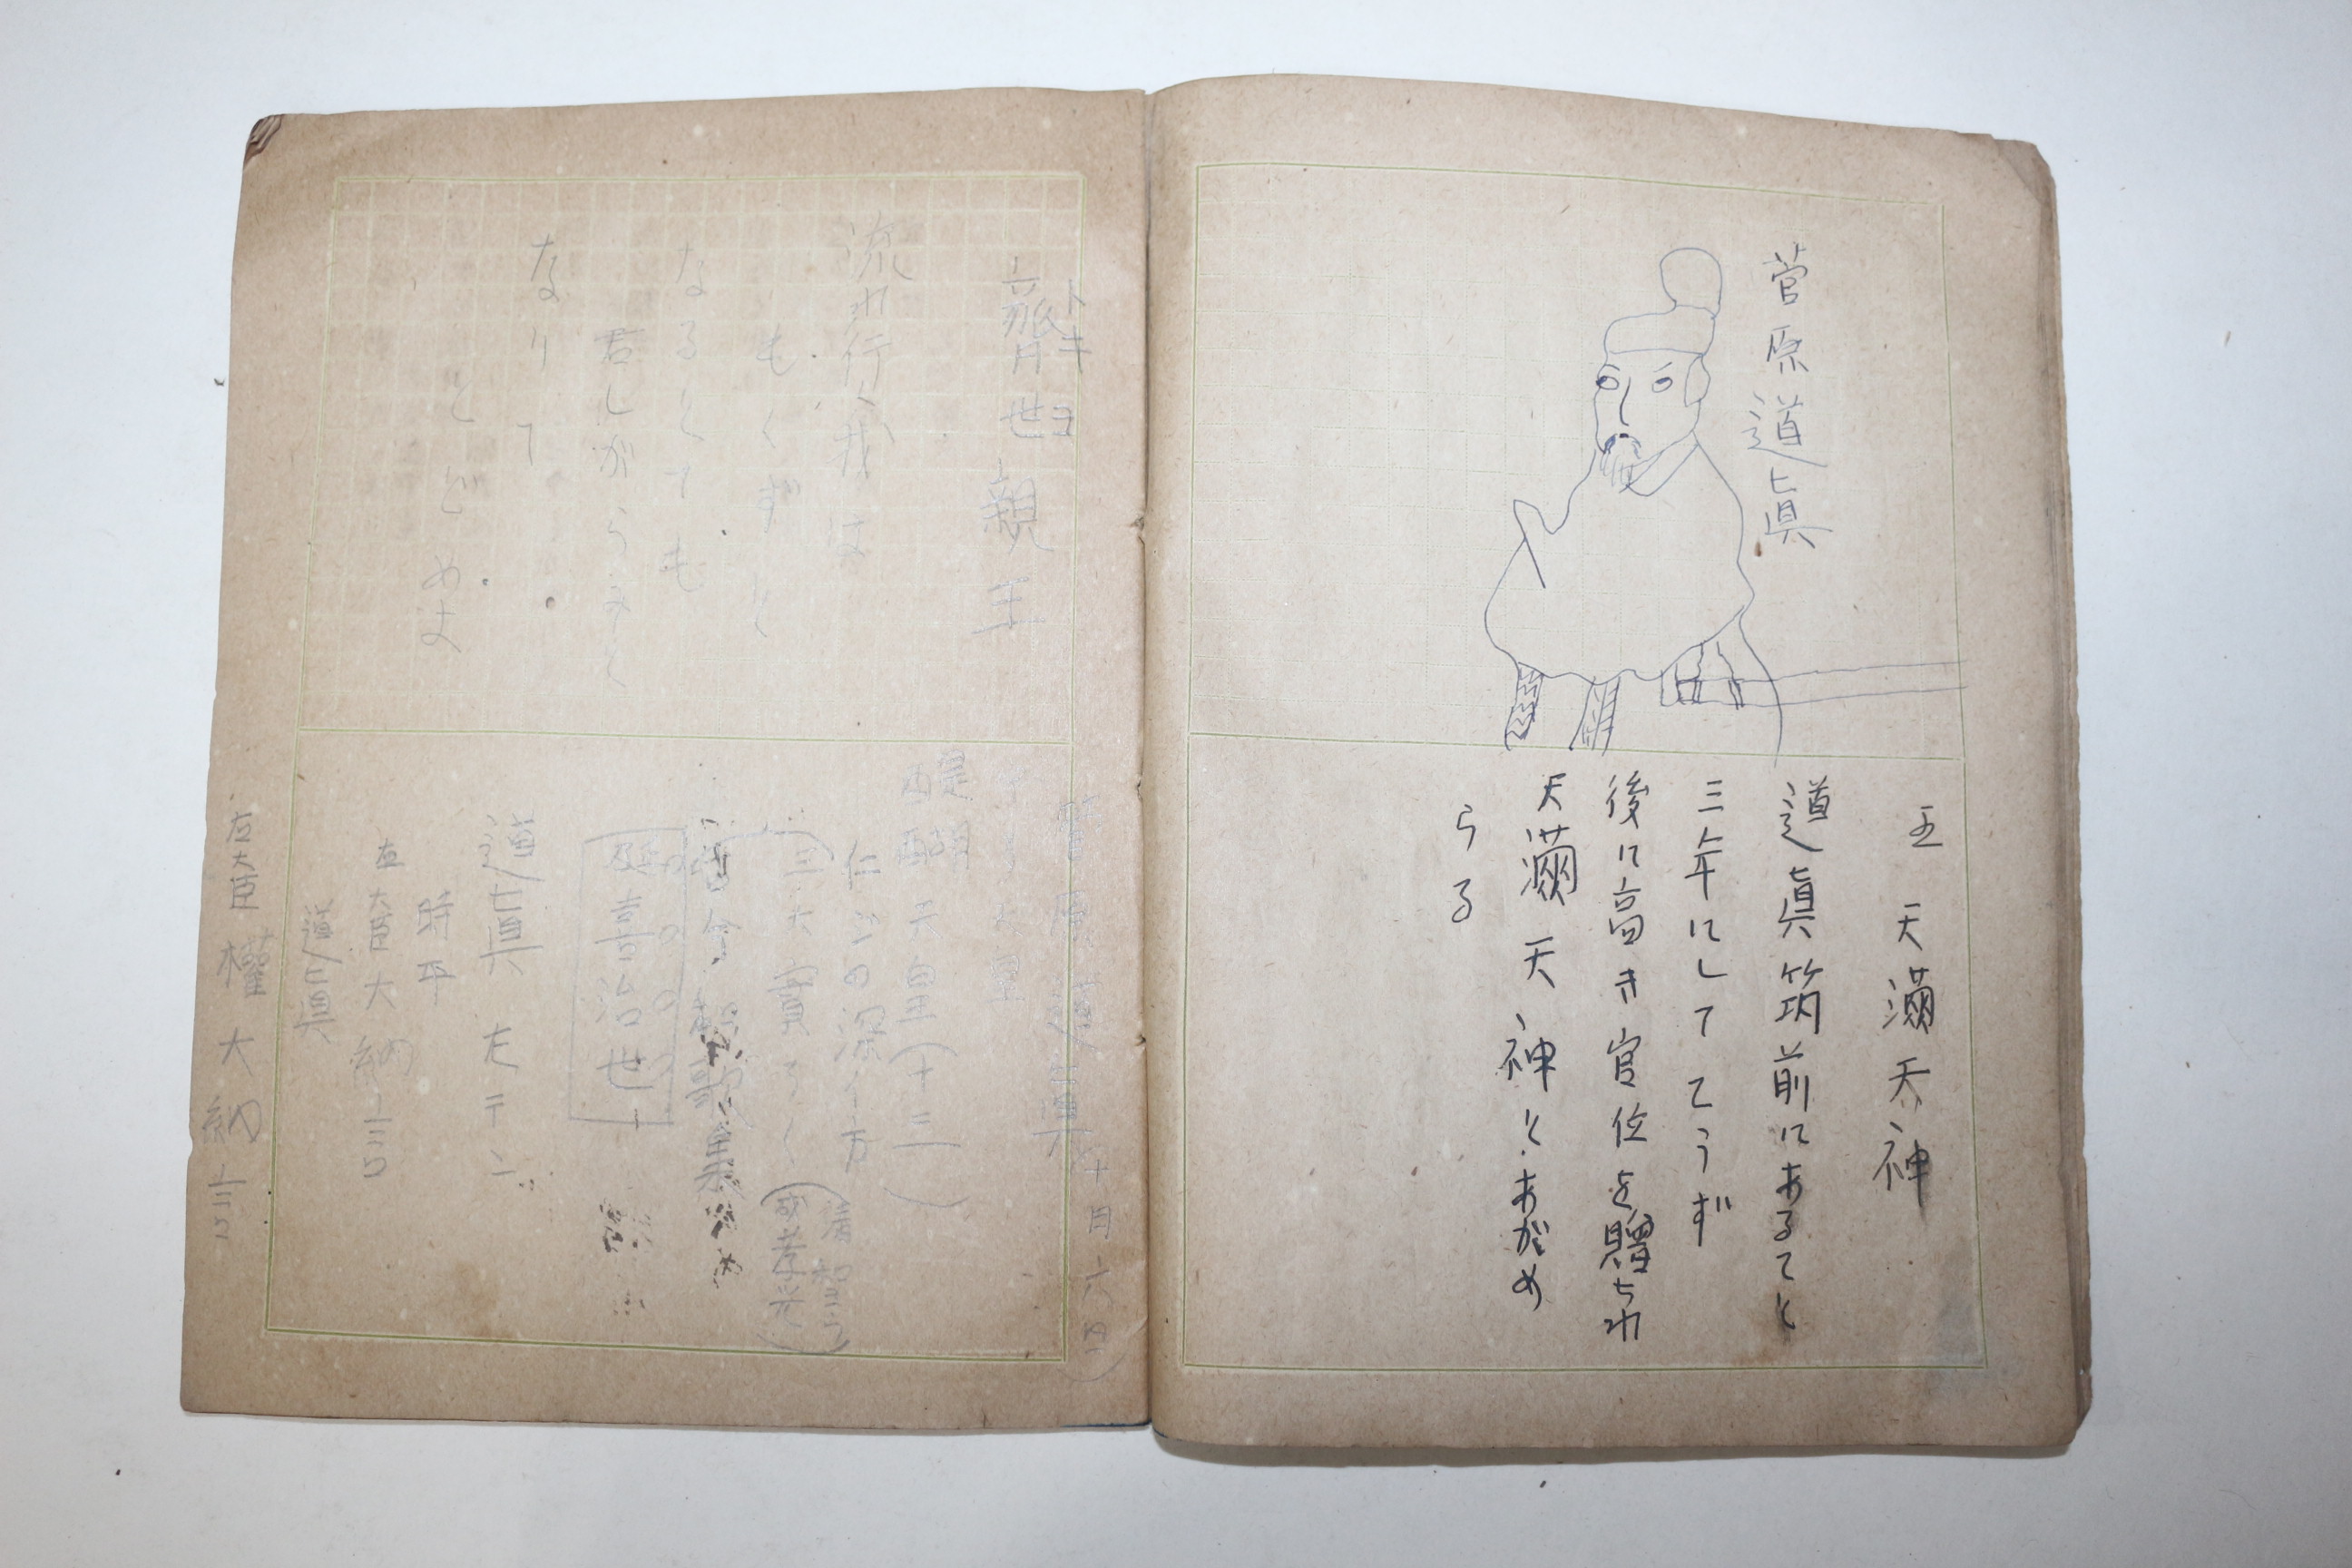 菅原道眞
五 天満天神
道眞筑前にあること
三年にしてこうず
後に高き官位を贈られ
天満天神とあがめ
らる
トキヨ
齊世親王
流れ行く我は
もくずと
なるとても
君しがらみと
なりて
とどめよ
菅原道眞
十月六日
醍醐天皇(十三)
仁心の深い方
古今和歌集
延喜治世
道眞
時平
左大臣大納言
道眞
右大臣権大納言